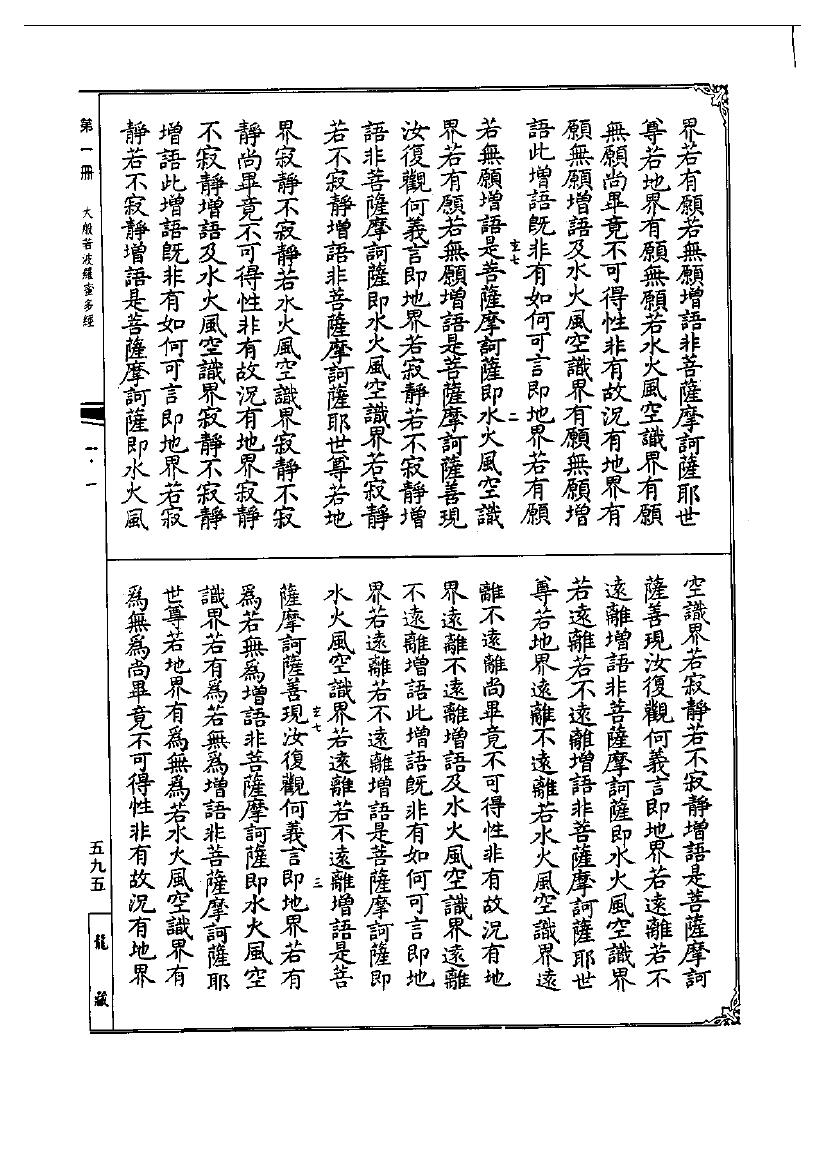 界若有願若無願增語非菩薩摩訶薩耶世
尊若地界有願無願若水火風空識界有願
無願尚畢竟不可得性非有故況有地界有
願無願增語及水火風空識界有願無願增
語此增語既非有如何可言即地界若有願
玄七
二
若無願增語是菩薩摩訶薩即水火風空識
界若有願若無願增語是菩薩摩訶薩善現
汝復觀何義言即地界若寂靜若不寂靜增
語非菩薩摩訶薩即水火風空識界若寂靜
若不寂靜增語非菩薩摩訶薩耶世尊若地
界寂靜不寂靜若水火風空識界寂靜不寂
靜尚畢竟不可得性非有故況有地界寂靜
不寂靜增語及水火風空識界寂靜不寂靜
增語此增語既非有如何可言即地界若寂
靜若不寂靜增語是菩薩摩訶薩即水火風
空識界若寂靜若不寂靜增語是菩薩摩訶
薩善現汝復觀何義言即地界若遠離若不
遠離增語非菩薩摩訶薩即水火風空識界
若遠離若不遠離增語非菩薩摩訶薩耶世
尊若地界遠離不遠離若水火風空識界遠
離不遠離尚畢竟不可得性非有故況有地
界遠離不遠離增語及水火風空識界遠離
不遠離增語此增語既非有如何可言即地
界若遠離若不遠離增語是菩薩摩訶薩即
水火風空識界若遠離若不遠離增語是菩
玄七
三
薩摩訶薩善現汝復觀何義言即地界若有
為若無為增語非菩薩摩訶薩即水火風空
識界若有為若無為增語非菩薩摩訶薩耶
世尊若地界有為無為若水火風空識界有
為無為尚畢竟不可得性非有故況有地界
第一冊 大般若波羅蜜多經
一·一
五九五
龍藏